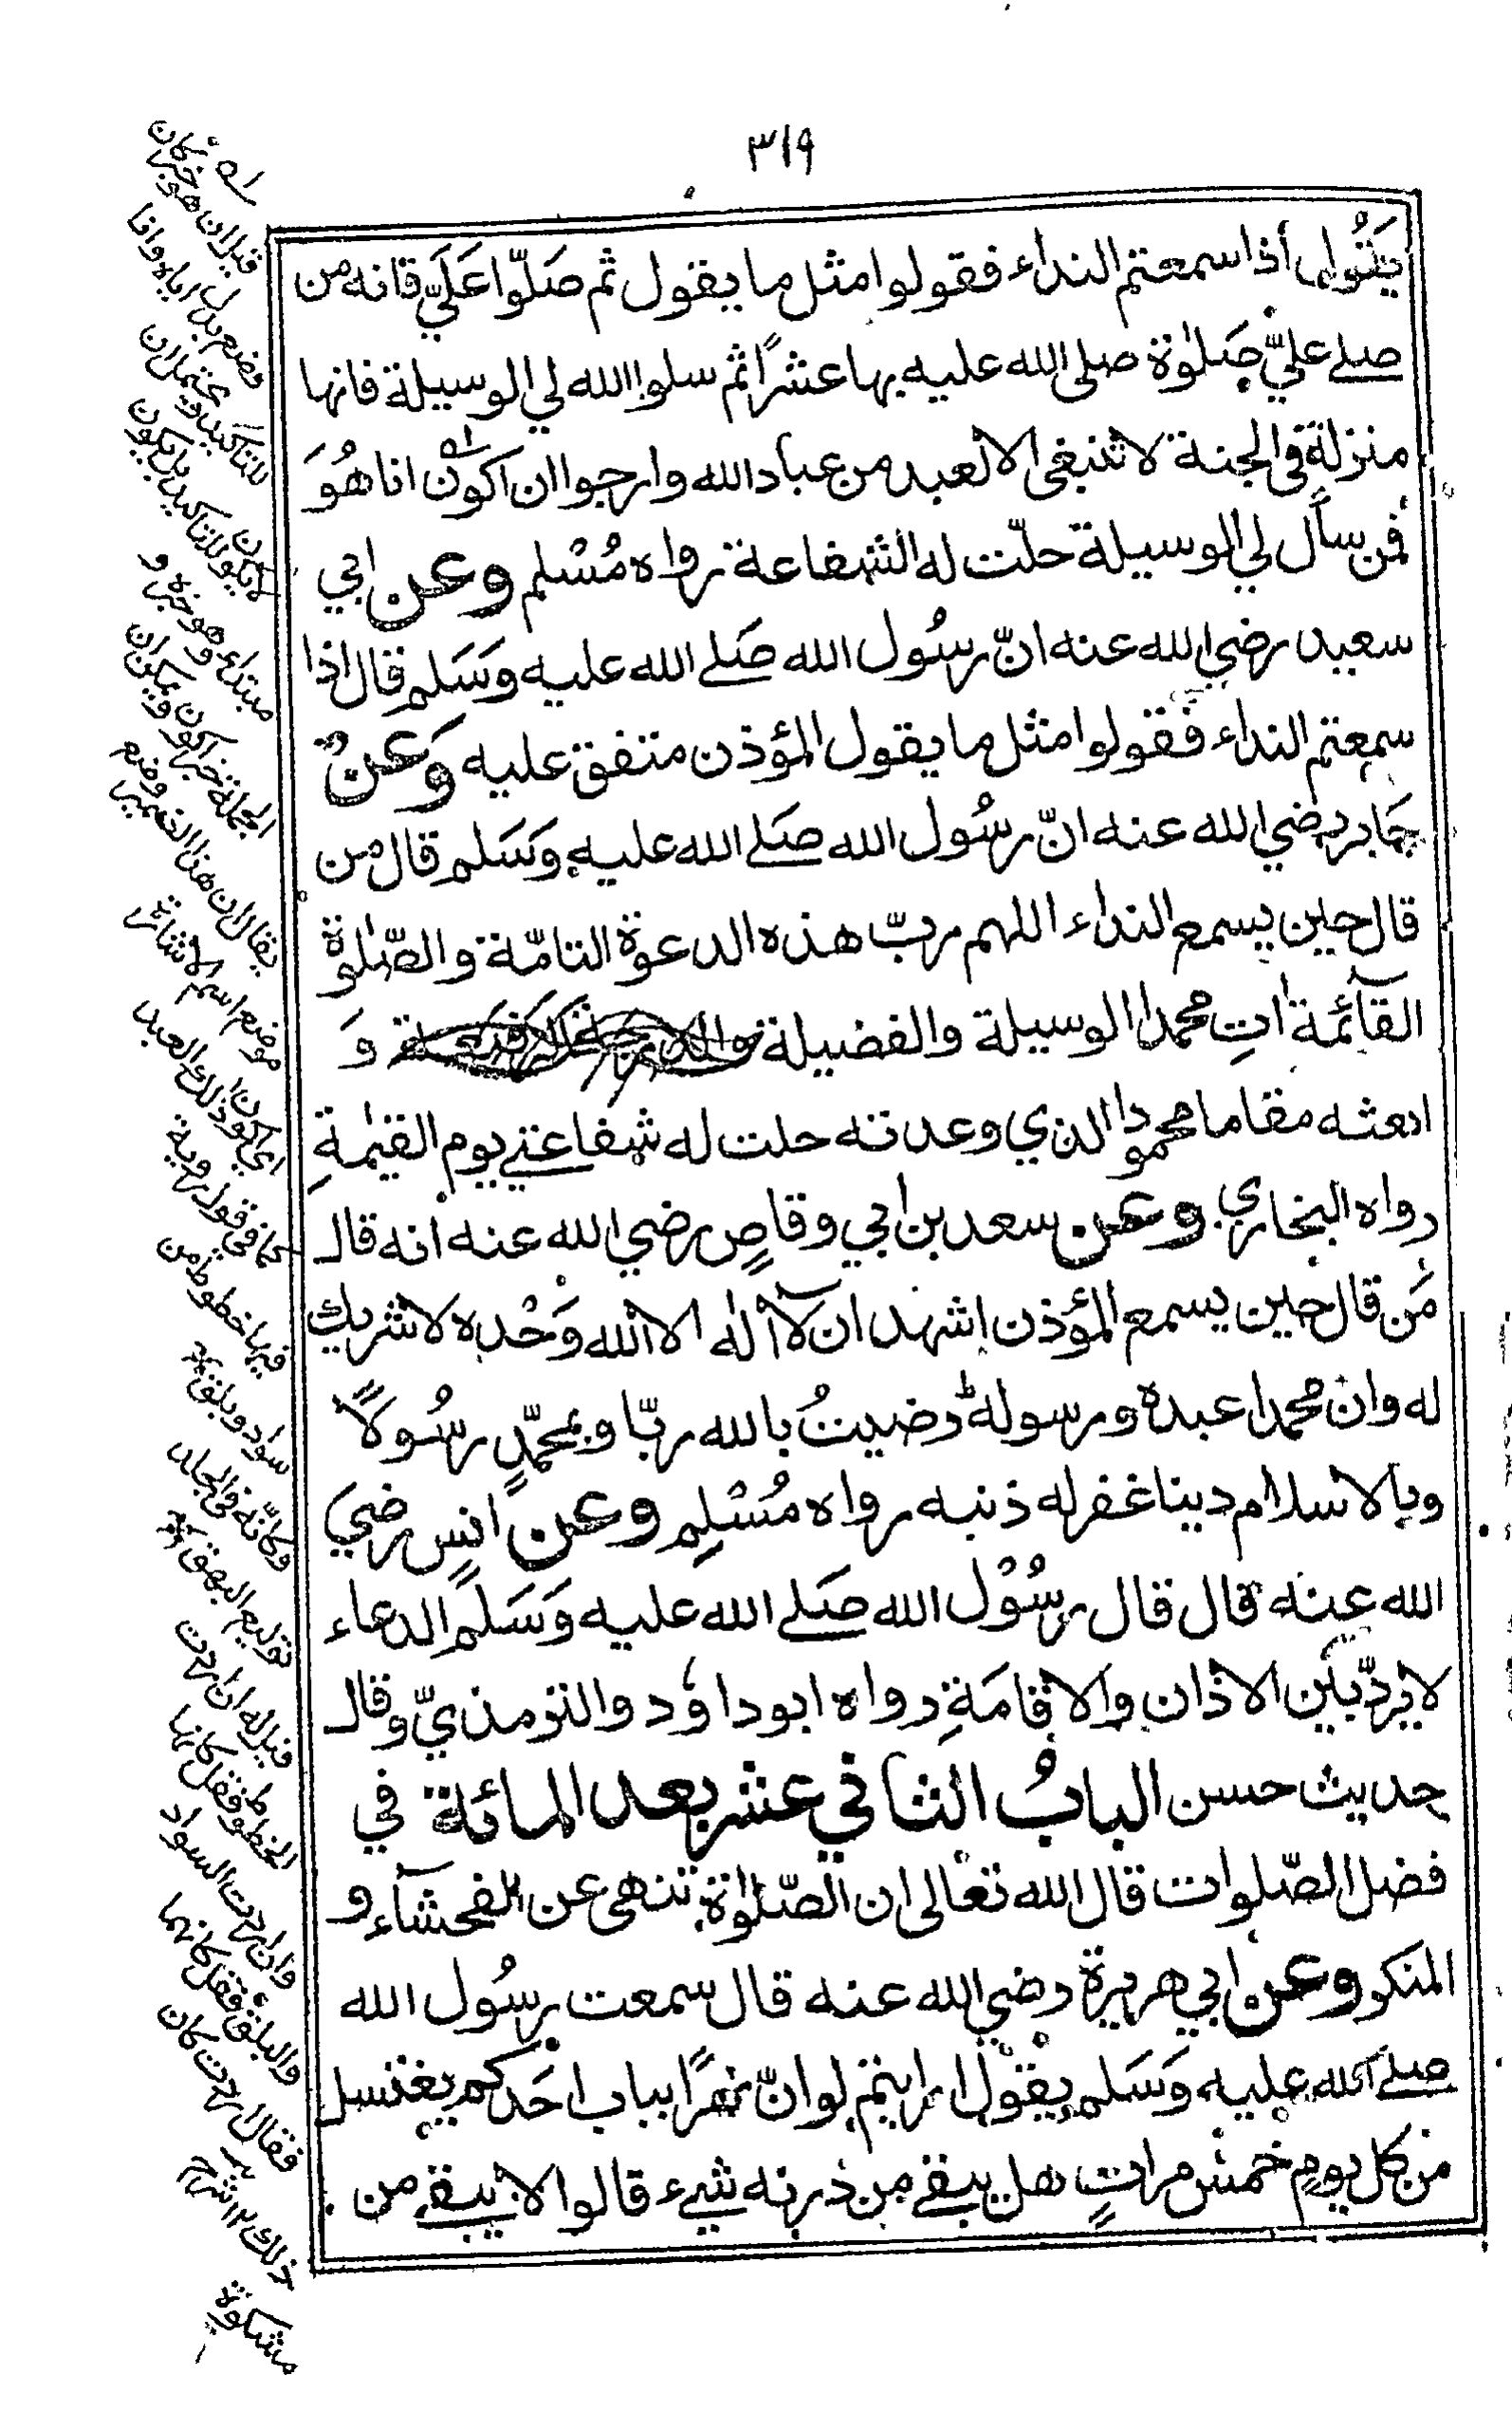 ٣١٩
يَقُولُ أذا سمعتم النداء فقولوا مثل ما يقول ثم صَلّوا عَلَيّ فانه من
صلے عليّ صَلوٰة صلى الله عليه بها عشرًا ثم سلوا الله لي الوسيلة فانها
منزلة في الجنة لا تنبغى الا لعبد من عباد الله وارجوا ان اكون انا هُوَ
فمن سأل لي الوسيلة حلّت له الشفاعة رواه مُسْلم وعن ابي
سعيد رضي الله عنه انّ رسُول الله صَلے الله عليه وَسَلم قال اذا
سمعتم النداء فقولوا مثل ما يقول المؤذن متفق عليه وَعن
جَابر رضي الله عنه انّ رسُول الله صَلے الله عليه وَسَلم قال من
قال حين يسمع النداء اللهم ربّ هذه الدعوة التامّة والصّلٰوة
القآئمة اتِ محمدا الوسيلة والفضيلة وَ
ابعثه مقاما محمودا الذي وعدته حلت له شفاعتي يوم القيٰمةِ
رواه البخاري وعن سعد بن ابي وقاصٍ رضي الله عنه انه قال
مَن قال حين يسمع المؤذن اشهد ان لآ اله الا الله وَحْده لا شريك
له وان محمدا عبده ورسوله رضيتُ بالله ربّا وبمحمّدٍ رسُولًا
وبالاسلام دينا غفر له ذنبه رواه مُسْلِم وعن انسٍ رضي
الله عنه قال قال رسُوْل الله صَلے الله عليه وَسَلم الدعاء
لا يردّ بين الاذان والاقامَةِ رواه ابو داوٗد والترمذيّ وقال
حديث حسن البابُ الثاني عشر بعد المائة في
فضل الصّلوات قال الله تعالى ان الصّلوٰة تنهى عن الفحشآء و
المنكر وعن ابي هريرة رضي الله عنه قال سمعت رسُول الله
صلے الله عليه وَسَلم يقول ارايتم لو انّ نهرًا بباب احَدكم يغتسل
من كل يومٍ خمس مراتٍ هل يبقے من درنه شيء قالوا لا يبقے من
قيل ان هو خبر كان
وضع بدل اياه وانا
للتاكيد ويحتمل ان
لا يكون للتاكيد بل يكون
مبتداء وهو خبره و
الجملة خبر اكون ويمكن ان
يقال ان هذا الضمير وضع
موضع اسم الاشارة
اي اكون ذلك العبد
كما في قول روبة
فيها خطوط من
سواد وبلق
وكانّه في الجلد
توليع البهق
فقيل له ان اردت
الخطوط فقل كانها
وان اردت السواد
والبلق فقل كانهما
فقال اردت كان
ذلك ١٢ شرح
مشكوة